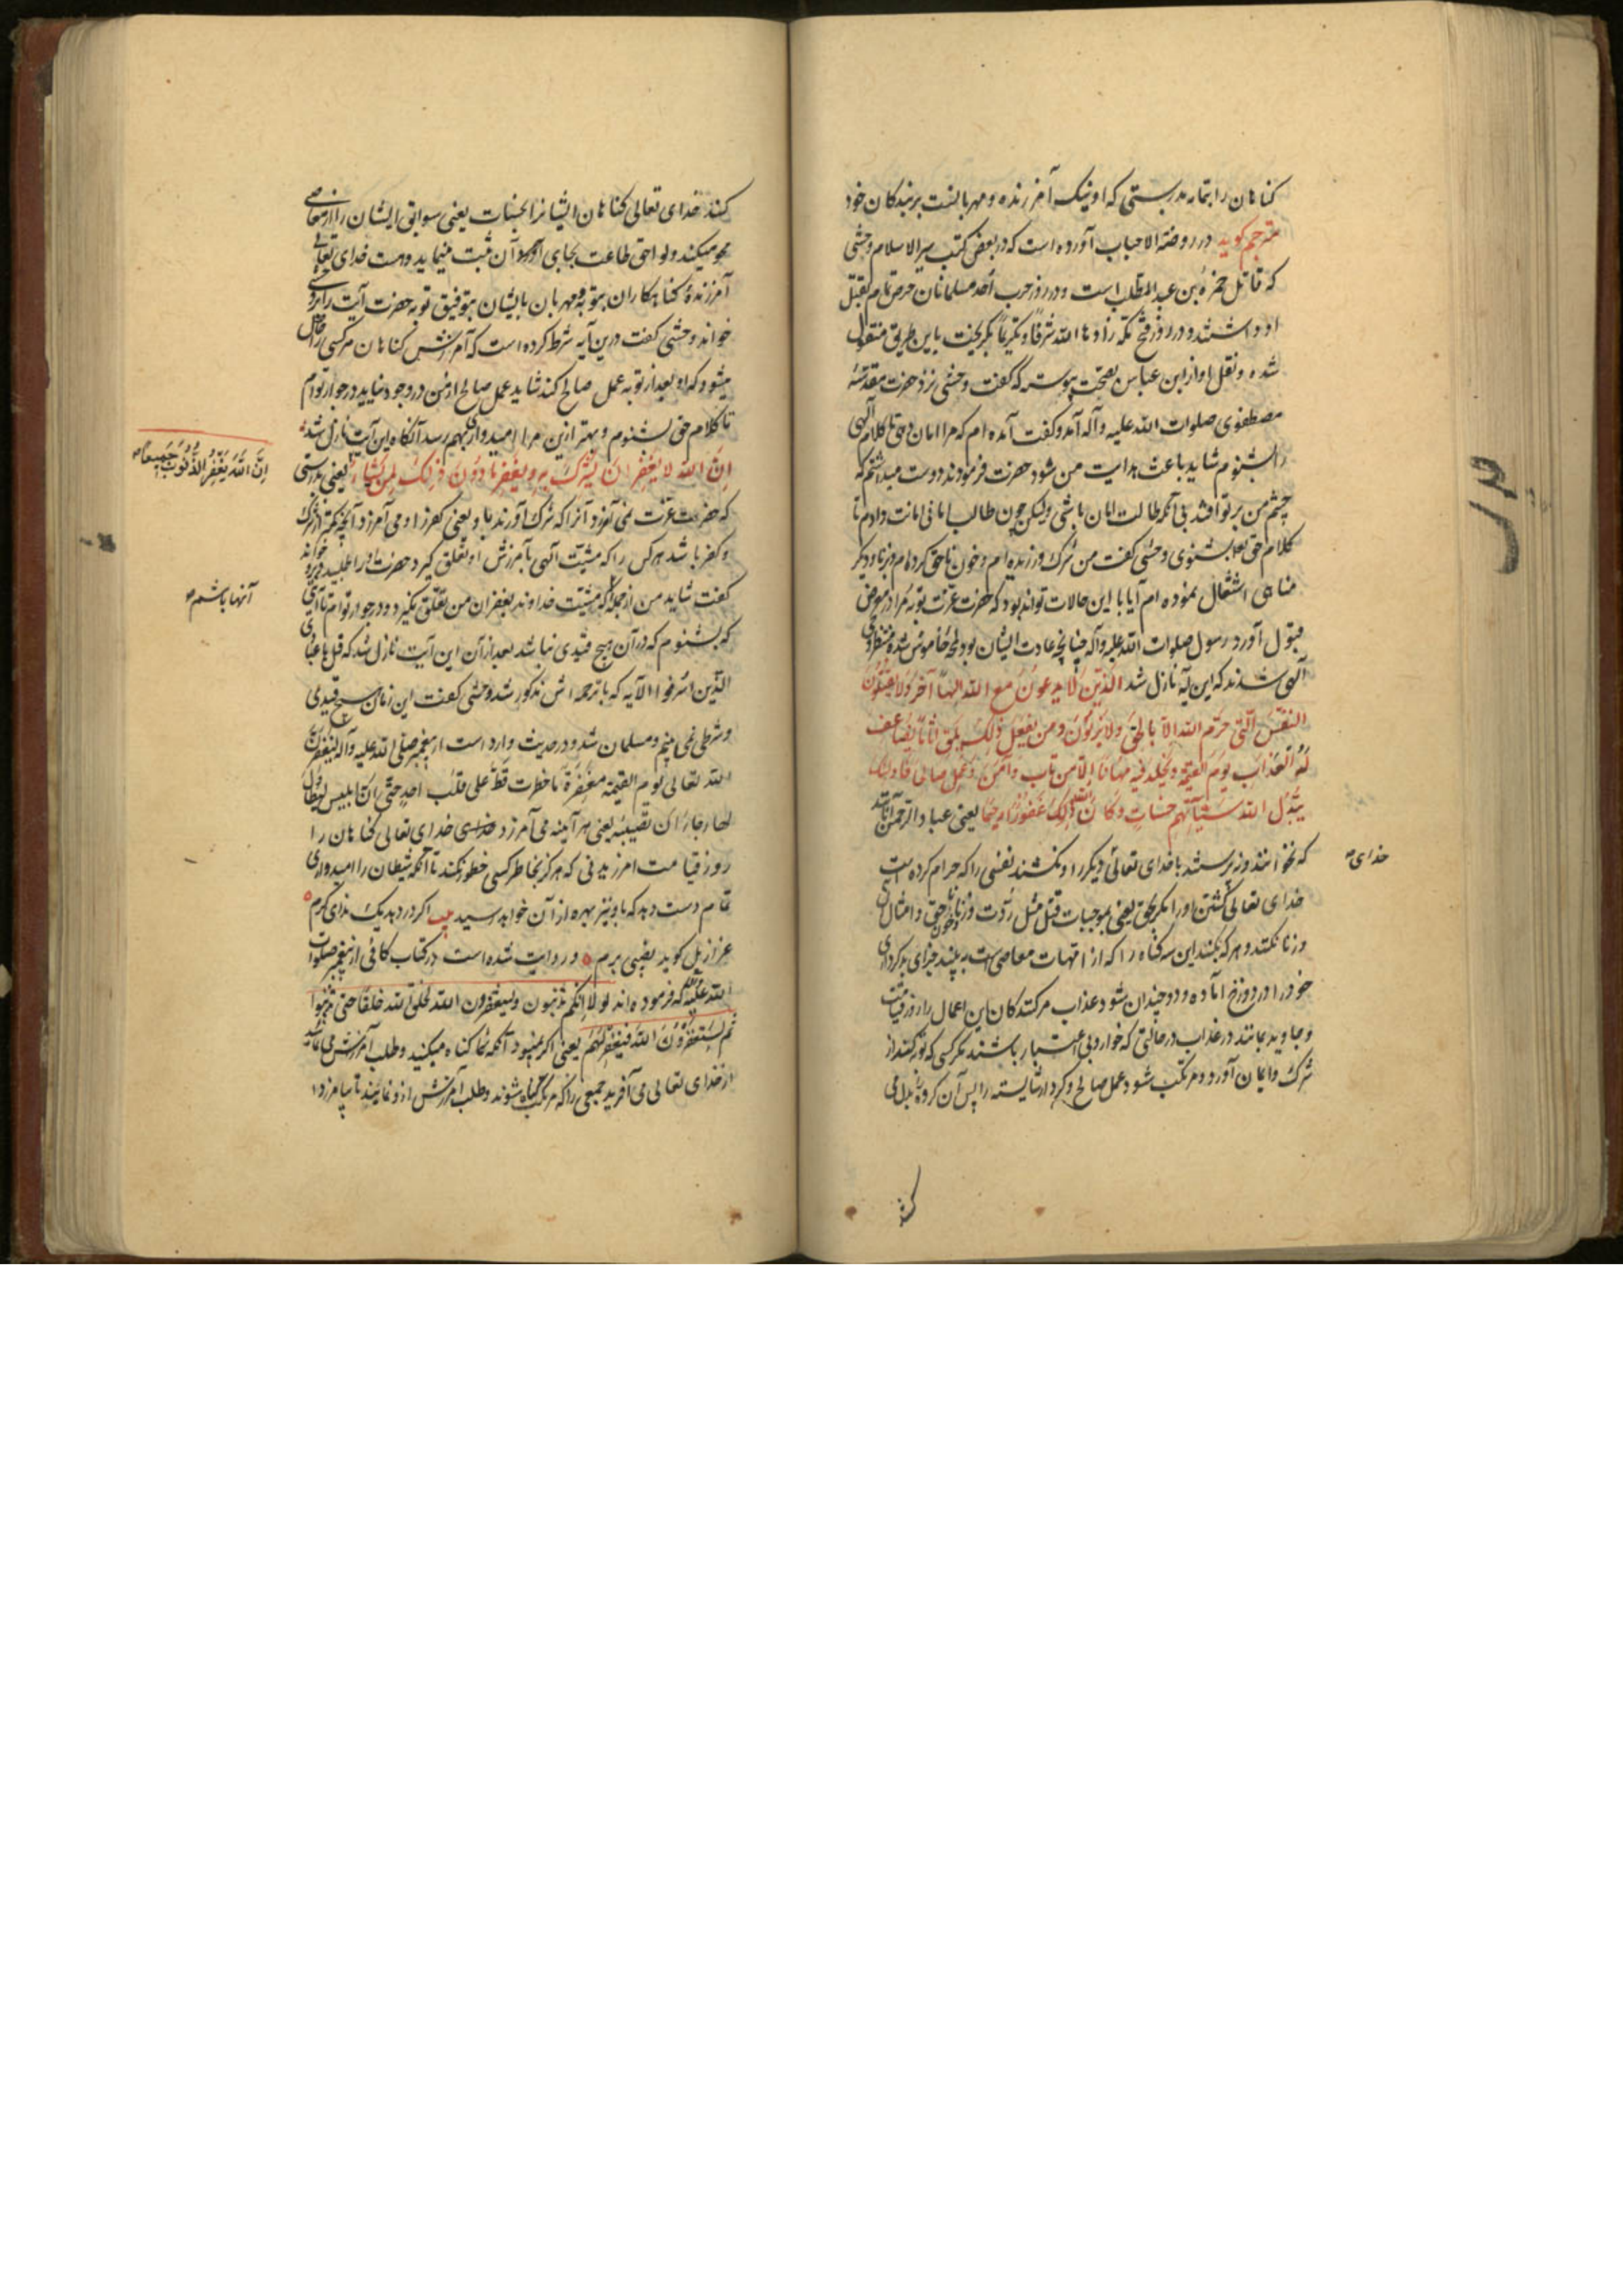 کناهان را بتمامه بدرستی که او نیک آمرزنده و مهربانست بر بندکان خود
مترجم کوید در روضة الاحباب آورده است که در بعض کتب سیر الاسلام وحشی
که قاتل حمزه بن عبد المطلب است و در روز حرب اُحد مسلمانان حرص تمام بقتل
او داشتند و در روز فتح مکه زادها الله شرفا و تکریما بکریخت باین طریق منقول
شده و نقل او از ابن عباس بصحت پیوسته که کفت وحشی نزد حضرت مقدسهٔ
مصطفوی صلوات الله علیه و آله آمد و کفت آمده ام که مرا امان دهی تا کلام الهی
را بشنوم شاید باعث هدایت من شود حضرت فرمودند دوست میداشتم که
چشم من بر تو افتد بی آنکه طالب امان باشی ولیکن چون طالب امانی امانت دادم تا
کلام حق بشنوی وحشی کفت من شرک ورزیده ام و خون ناحق کرده ام و بزنا و دیکر
مناهی اشتغال نموده ام آیا با این حالات تواند بود که حضرت عزت توبه مرا در معرض
قبول آورد رسول صلوات الله علیه و آله چنانچه عادت ایشان بود لمحهٔ خاموش شده منتظر وحی
الهی شدند که این آیه نازل شد الَّذین لا یدعون مع الله الهاً آخر ولا یقتلون
النفس الّتی حرّم الله الّا بالحق ولا یزنون و من یفعل ذلک یلق اثاماً یضاعف
له العذاب یوم القیٰمة و یخلد فیه مهانا الّا من تاب و آمن و عمل صالحا فاولئک
یبدّل الله سیّآتهم حسنات و کان الله غفورا رحیما یعنی عباد الرحمن آنانند
که نخوانند و نپرستند با خدای تعالی دیکر را و نکشند نفسی را که حرام کرده است
خدای
خدای تعالی کشتن او را مکر بحق یعنی بموجبات قتل مثل ردّت و زنا و خون ناحق و امثال آن
و زنا نکنند و هر که بکند این سه کناه را که از امهات معاصی است به بیند جزای بد کرداری
خود را در دوزخ آماده و دو چندان شود عذاب مرکتندکان این اعمال را روز قیامت
و جاوید بمانند در عذاب در حالتی که خوار و بی اعتبار باشند مکر کسی که توبه کند از
شرک و ایمان آورد و مرتکب شود عمل صالح و کردار شایسته را پس آن کروه بدل می
کند
کند خدای تعالی کناهان ایشانرا بحسنات یعنی سوابق ایشان را از معاصی
محو میکند و لواحق طاعت بجای آن ثبت مینماید و هست خدای تعالی
آمرزندهٔ کناهکاران بتوبه و مهربان بایشان بتوفیق توبه حضرت آیت را بر وی
خواند وحشی کفت درین آیه شرط کرده است که آمرزش کناهان مر کسی را حاصل
میشود که او بعد از توبه عمل صالح کند شاید عمل صالح از من در وجود نیاید در جوار توام
تا کلام حق بشنوم و بهتر ازین مرا امیدواری بهم رسد آنکاه این آیت نازل شد
انّ الله لا یغفر ان یشرک به و یغفر ما دون ذلک لمن یشاء یعنی بدرستی
انّ الله یغفر الذنوب جمیعا
که حضرت عزت نمی آمرزد آنرا که شرک آورند باو یعنی کفر را و می آمرزد آنچه کمتر از شرک
و کفر باشد هر کس را که مشیّت الهی بآمرزش او تعلق کیرد حضرت او را طلبید و برو خواند
کفت شاید من از جمله که مشیّت خداوند بغفران من تعلق نکیرد و در جوار توام تا آیتی
آنها باشم
که بشنوم که در آن هیچ قیدی نباشد بعد از آن این آیت نازل شد که قل یا عبادی
الّذین اسرفوا الآیه که با ترجمه اش مذکور شد وحشی کفت این زمان هیچ قیدی
و شرطی نمی بینم و مسلمان شد و در حدیث وارد است از پیغمبر صلی الله علیه و آله لیغفرنّ
الله تعالی یوم القیمة مغفرة ما خطرت قطّ علی قلب احد حتی انّ ابلیس لیتطاول
لها رجاء ان تصیبه یعنی هر آینه می آمرزد خدای تعالی کناهان را
روز قیامت امرزیدنی که هرکز بخاطر کسی خطور نکند تا آنکه شیطان را امیدواری
تمام دست دهد که باو نیز بهره از آن خواهد رسید بیت اکر در دهد یک ندای کرم
عزازیل کوید نصیبی برم و روایت شده است در کتاب کافی از پیغمبر صلوات
الله علیه که فرموده اند لو لا انّکم تذنبون و تستغفرون الله لخلق الله خلقا حتی یذنبوا
ثم یستغفرون الله فیغفر لهم یعنی اکر نمیبود آنکه شما کناه میکنید و طلب آمرزش می نمائید
از خدای تعالی می آفرید جمیعی را که مرتکب کناه شوند و طلب آمرزش ازو نمایند تا بیامرزد